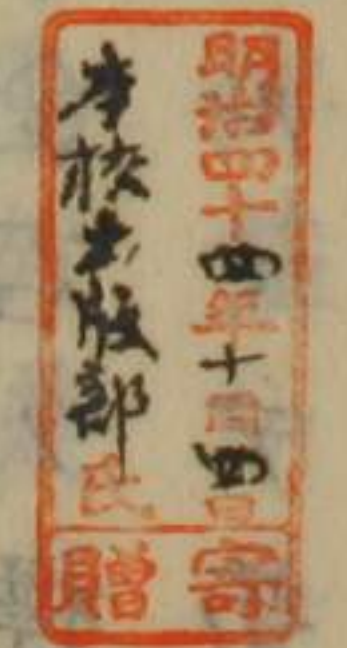 明治四十四年十月四日
本校出版部氏
寄贈